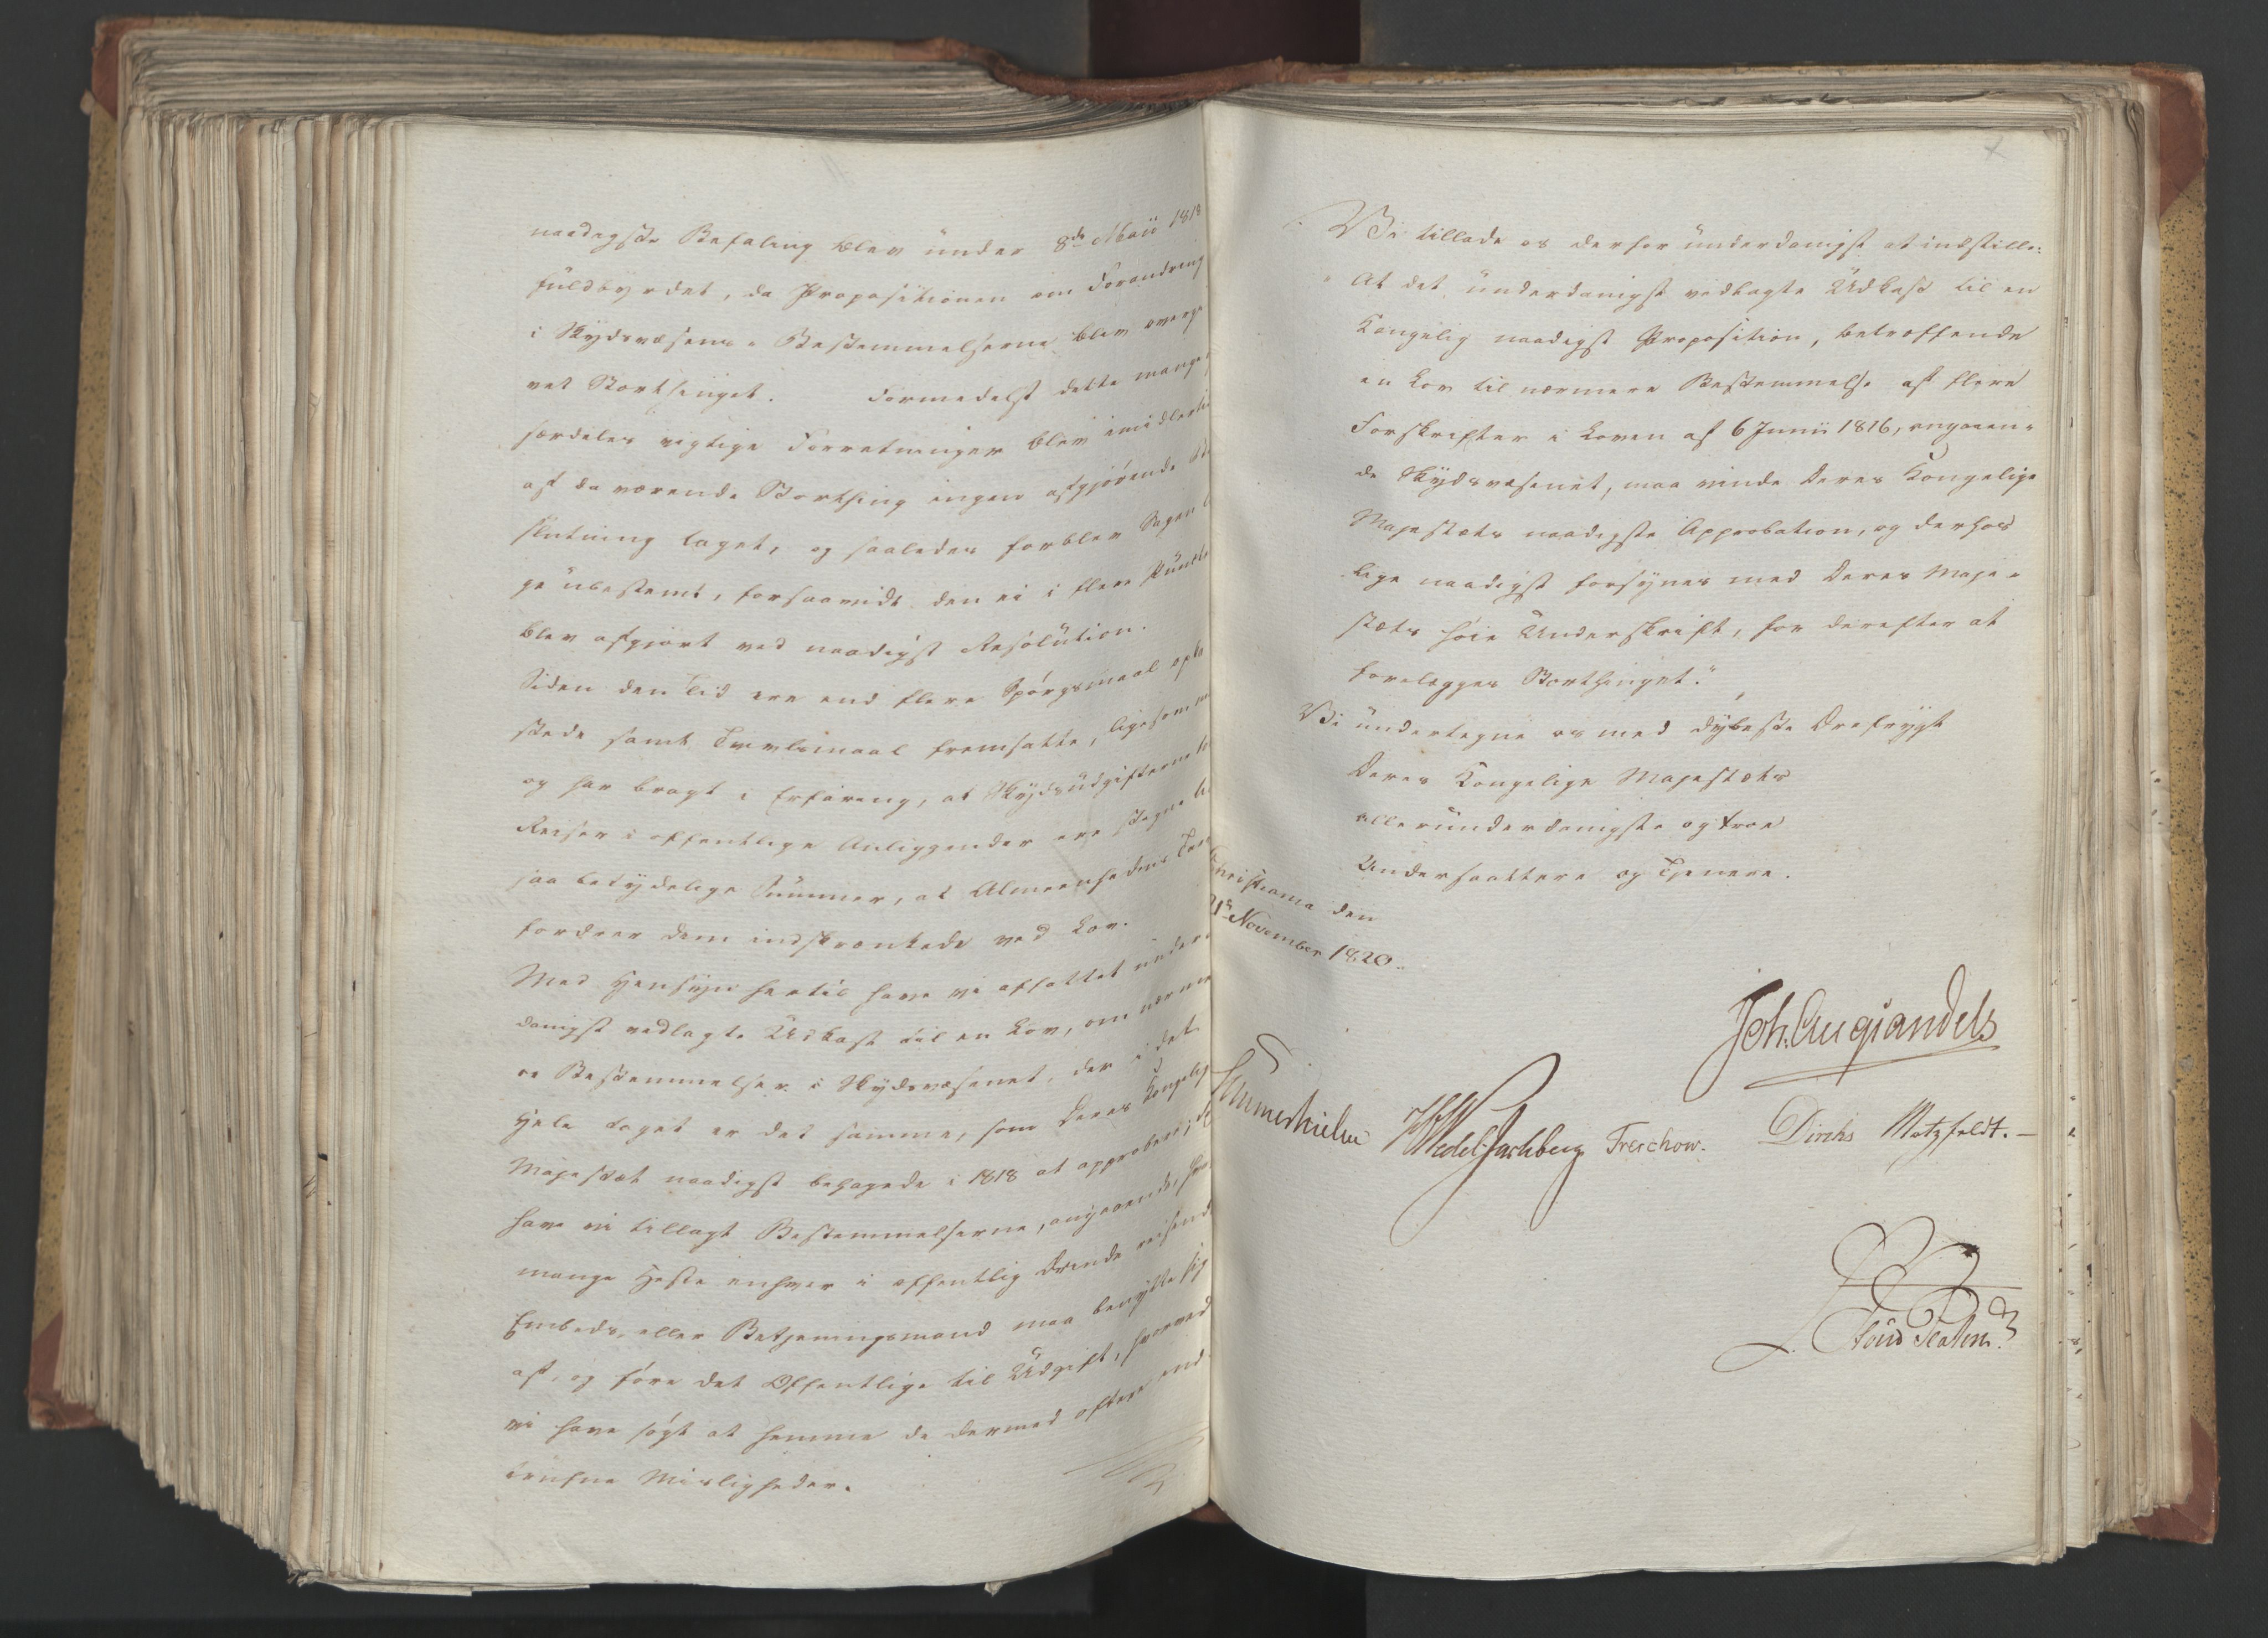 naadigste Befaling blev under 8de Maii 1818
fuldbyrdet, da Propositionen om Forandring
i Skydsvæsens-Bestemmelserne blev overgi
vet Storthinget. Formedelst dette mange
særdeles vigtige Forretninger blev imidlertid
af da værende Storthing ingen afgjørende Be
slutning taget, og saaledes forblev Sagen li
ge ubestemt, forsaavidt den ei i flere Puncte
blev afgjort ved naadigst Resolution.
Siden den Tid ere end flere Spørgsmaal op
stede samt Tvivlsmaal fremsatte, ligesom
og har bragt i Erfaring, at Skydsudgifterne
Reiser i offentlige Anliggender ere stegne til
saa betydelige Summer, at Almeenhedens Tarv
fordrer dem indskrænkede ved Lov.
Med Hensyn hertil have vi affattet under-
danigst vedlagte Udkast til en Lov, om nærme
re Bestemmelser i Skydsvæsenet, der i det
Hele taget er det samme, som Deres Kongelige
Majestæt naadigst behagede i 1818 at approbere; de
have vi tillagt Bestemmelserne, angaaende, hvor
mange Heste enhver i offentlig Ærende reisende
Embeds, eller Betjeningsmand maa benytte sig
af, og føre det Offentlige til Udgift, hvorved
vi have søgt at hemme de dermed oftere ind-
trufne Misligheder.
Vi tillade os derfor underdanigst at indstille:
"At det underdanigst vedlagte Udkast til en
Kongelig naadigst Proposition, betræffende
en Lov til nærmere Bestemmelse af flere
Forskrifter i Loven af 6 Junii 1816, angaaen-
de Skydsvæsenet, maa vinde Deres Kongelige
Majestæts naadigste Approbation, og derhos
lige naadigst forsynes med Deres Maje-
stæts høie Underskrift, for derefter at
forelægges Storthinget."
Vi undertegne os med dybeste Ærefrygt
Deres Kongelige Majestæts
allerunderdanigste og troe
Undersaattere og Tjenere.
Christiania den
21de November 1820.
Joh. Aug Sandels
Sommerhielm HWedel Jarlsberg Treschow. Diriks Motzfeldt.